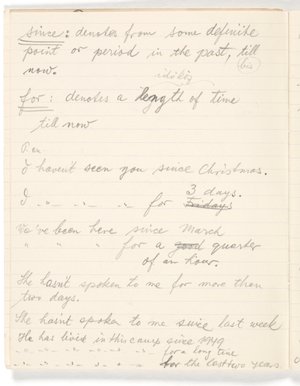 since: denotes from some definite
point or period in the past, till
now.
for: denotes a length of time
till now
I havent seen you since Christmas.
I " " " " for 3 days.
We've been here since March
" " " for a quarter
of an hour.
She hasn't spoken to me for more than
two days.
She hasn't spoken to me since last week
He has lived in this camp since 1949
" " " " " " for a long time
" " " " " " for the last two years